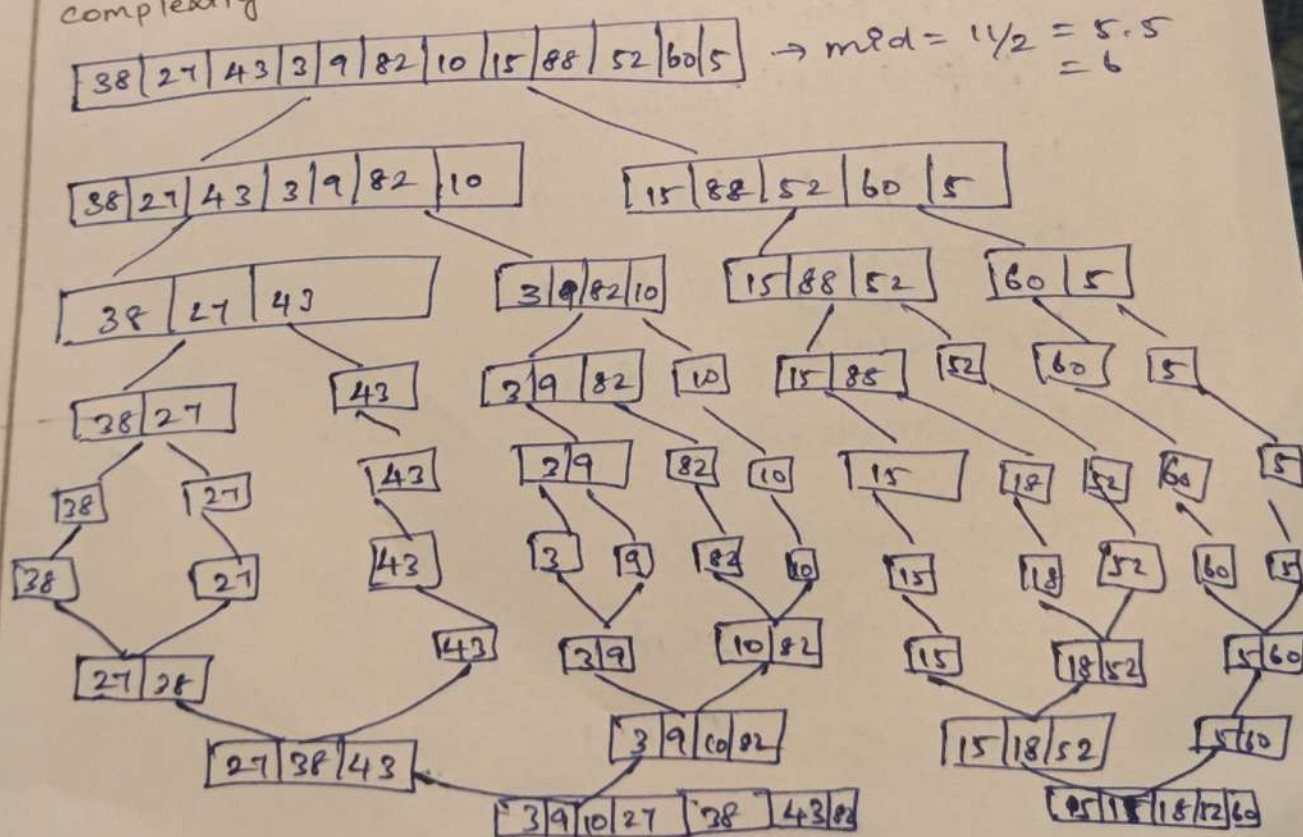 complexity
38 27 43 3 9 82 10 15 88 52 60 5 → mid = 11/2 = 5.5
= 6
38 27 43 3 9 82 10 15 88 52 60 5
38 27 43 3 9 82 10 15 88 52 60 5
38 27 43 3 9 82 10 15 88 52 60 5
38 27 43 3 9 82 10 15 18 52 60 5
38 27 43 3 9 82 10 15 18 52 60 5
27 38 43 3 9 10 82 15 18 52 5 60
27 38 43 3 9 10 82 15 18 52 5 60
3 9 10 27 38 43 82 18 52 60